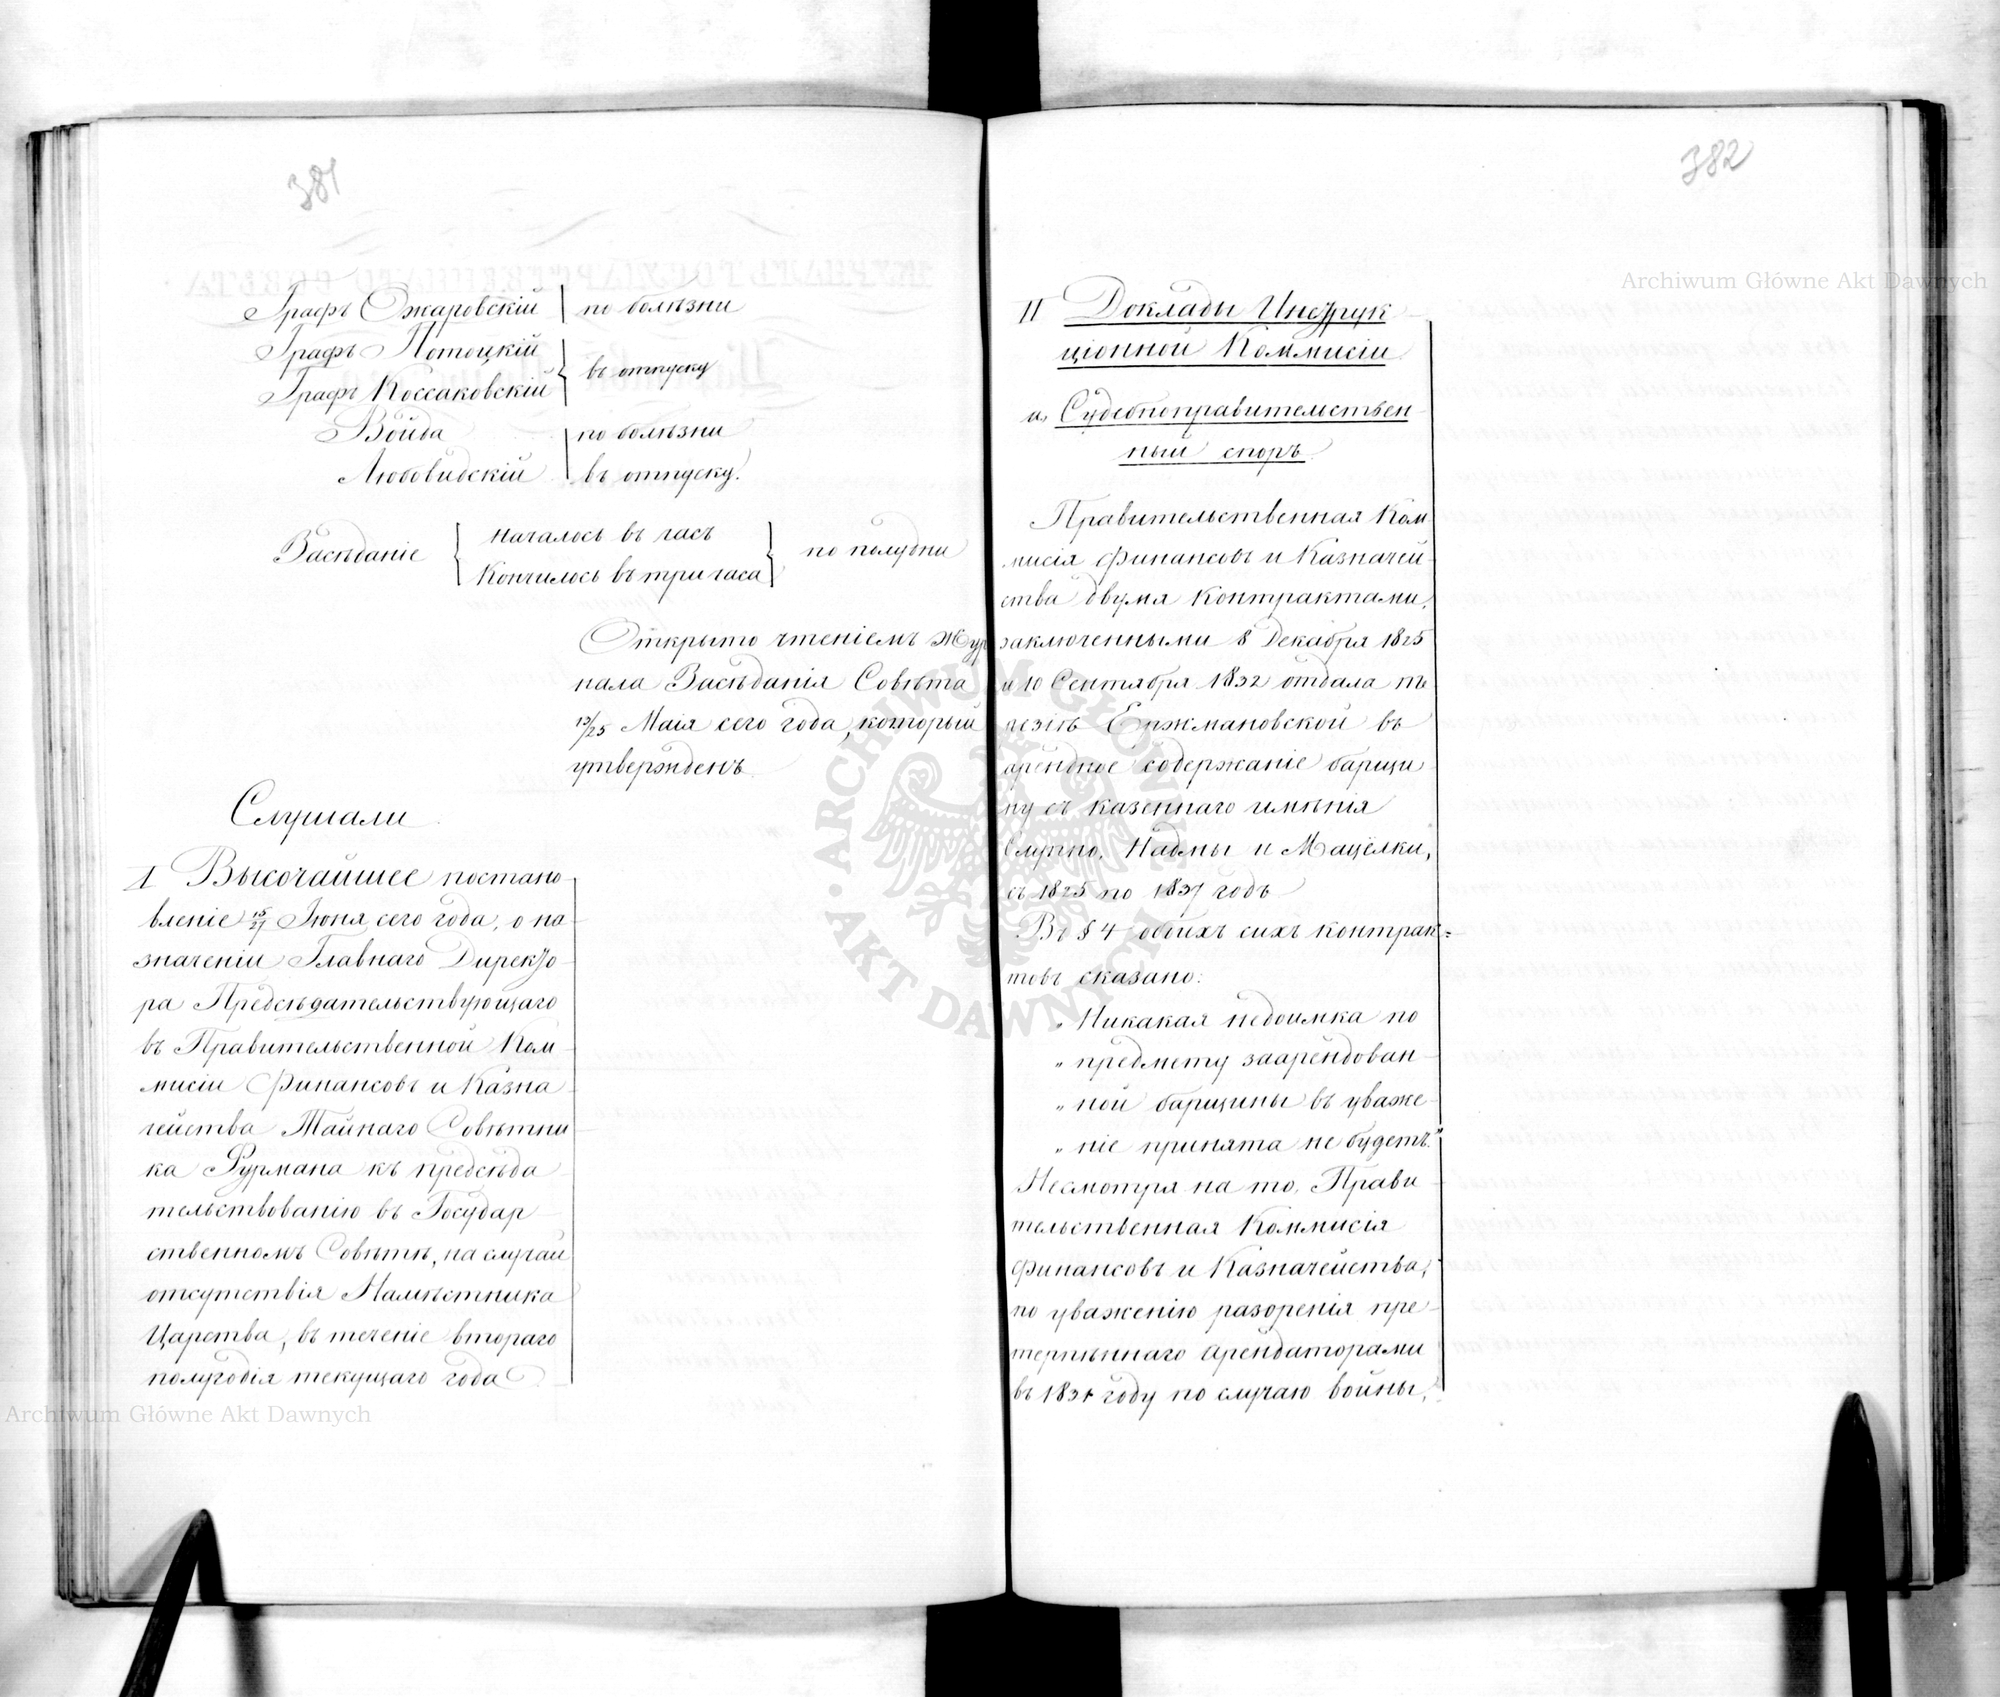 381
Графъ Ожаровскій | по болѣзни
Графъ Потоцкій
Графъ Коссаковскій } въ отпуску
Войда | по болѣзни
Любовидскій | въ отпуску.
Засѣданіе { началось въ часъ
Кончилось въ три часа } по полудни
Открыто чтеніемъ Жур
нала Засѣданія Совѣта
13/25 Маія сего года, который
утвержденъ.
Слушали
I Высочайшее постано
вленіе 15/27 Іюня сего года, о на
значеніи Главнаго Директо
ра Предсѣдательствующаго
въ Правительственной Ком
мисіи Финансовъ и Казна
чейства Тайнаго Совѣтни
ка Фурмана къ предсѣда
тельствованію въ Государ
ственномъ Совѣтѣ, на случай
отсутствія Намѣстника
Царства, въ теченіе втораго
полугодія текущаго года
Archiwum Główne Akt Dawnych
382
Archiwum Główne Akt Dawnych
II Доклады Инструк
ціонной Коммисіи
а, Судебноправительствен-
ный споръ.
Правительственная Ком
мисія Финансовъ и Казначей-
ства двумя Контрактами,
заключенными 8 Декабря 1825
и 10 Сентября 1832 отдала те
резіѣ Ержмановской въ
арендное содержаніе барщи
ну съ казеннаго имѣнія
Слупно, Надмы и Мацёлки,
съ 1825 по 1837 годъ
Въ § 4 обоихъ сихъ контрак=
товъ сказано:
„ Никакая недоимка по
„ предмету заарендован-
„ ной барщины въ уваже-
„ ніе принята не будетъ."
Несмотря на то, Прави
тельственная Коммисія
Финансовъ и Казначейства,
по уваженію разоренія пре-
терпѣннаго арендаторами
въ 1831 году по случаю войны,
ARCHIWUM GŁÓWNE AKT DAWNYCH